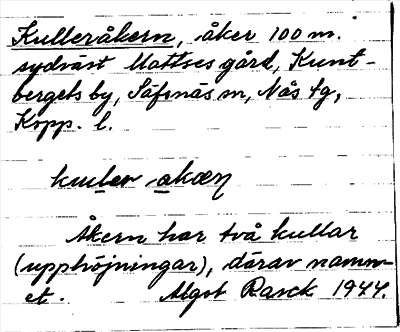 Kulleråkern, åker 100 m.
sydväst Mattses gård, Kunt-
bergets by, Säfsnäs sn, Nås tg,
Kopp. l.
kuller akæɳ
Åkern har två kullar
(upphöjningar), därav namn-
et. Algot Rasck 1944.